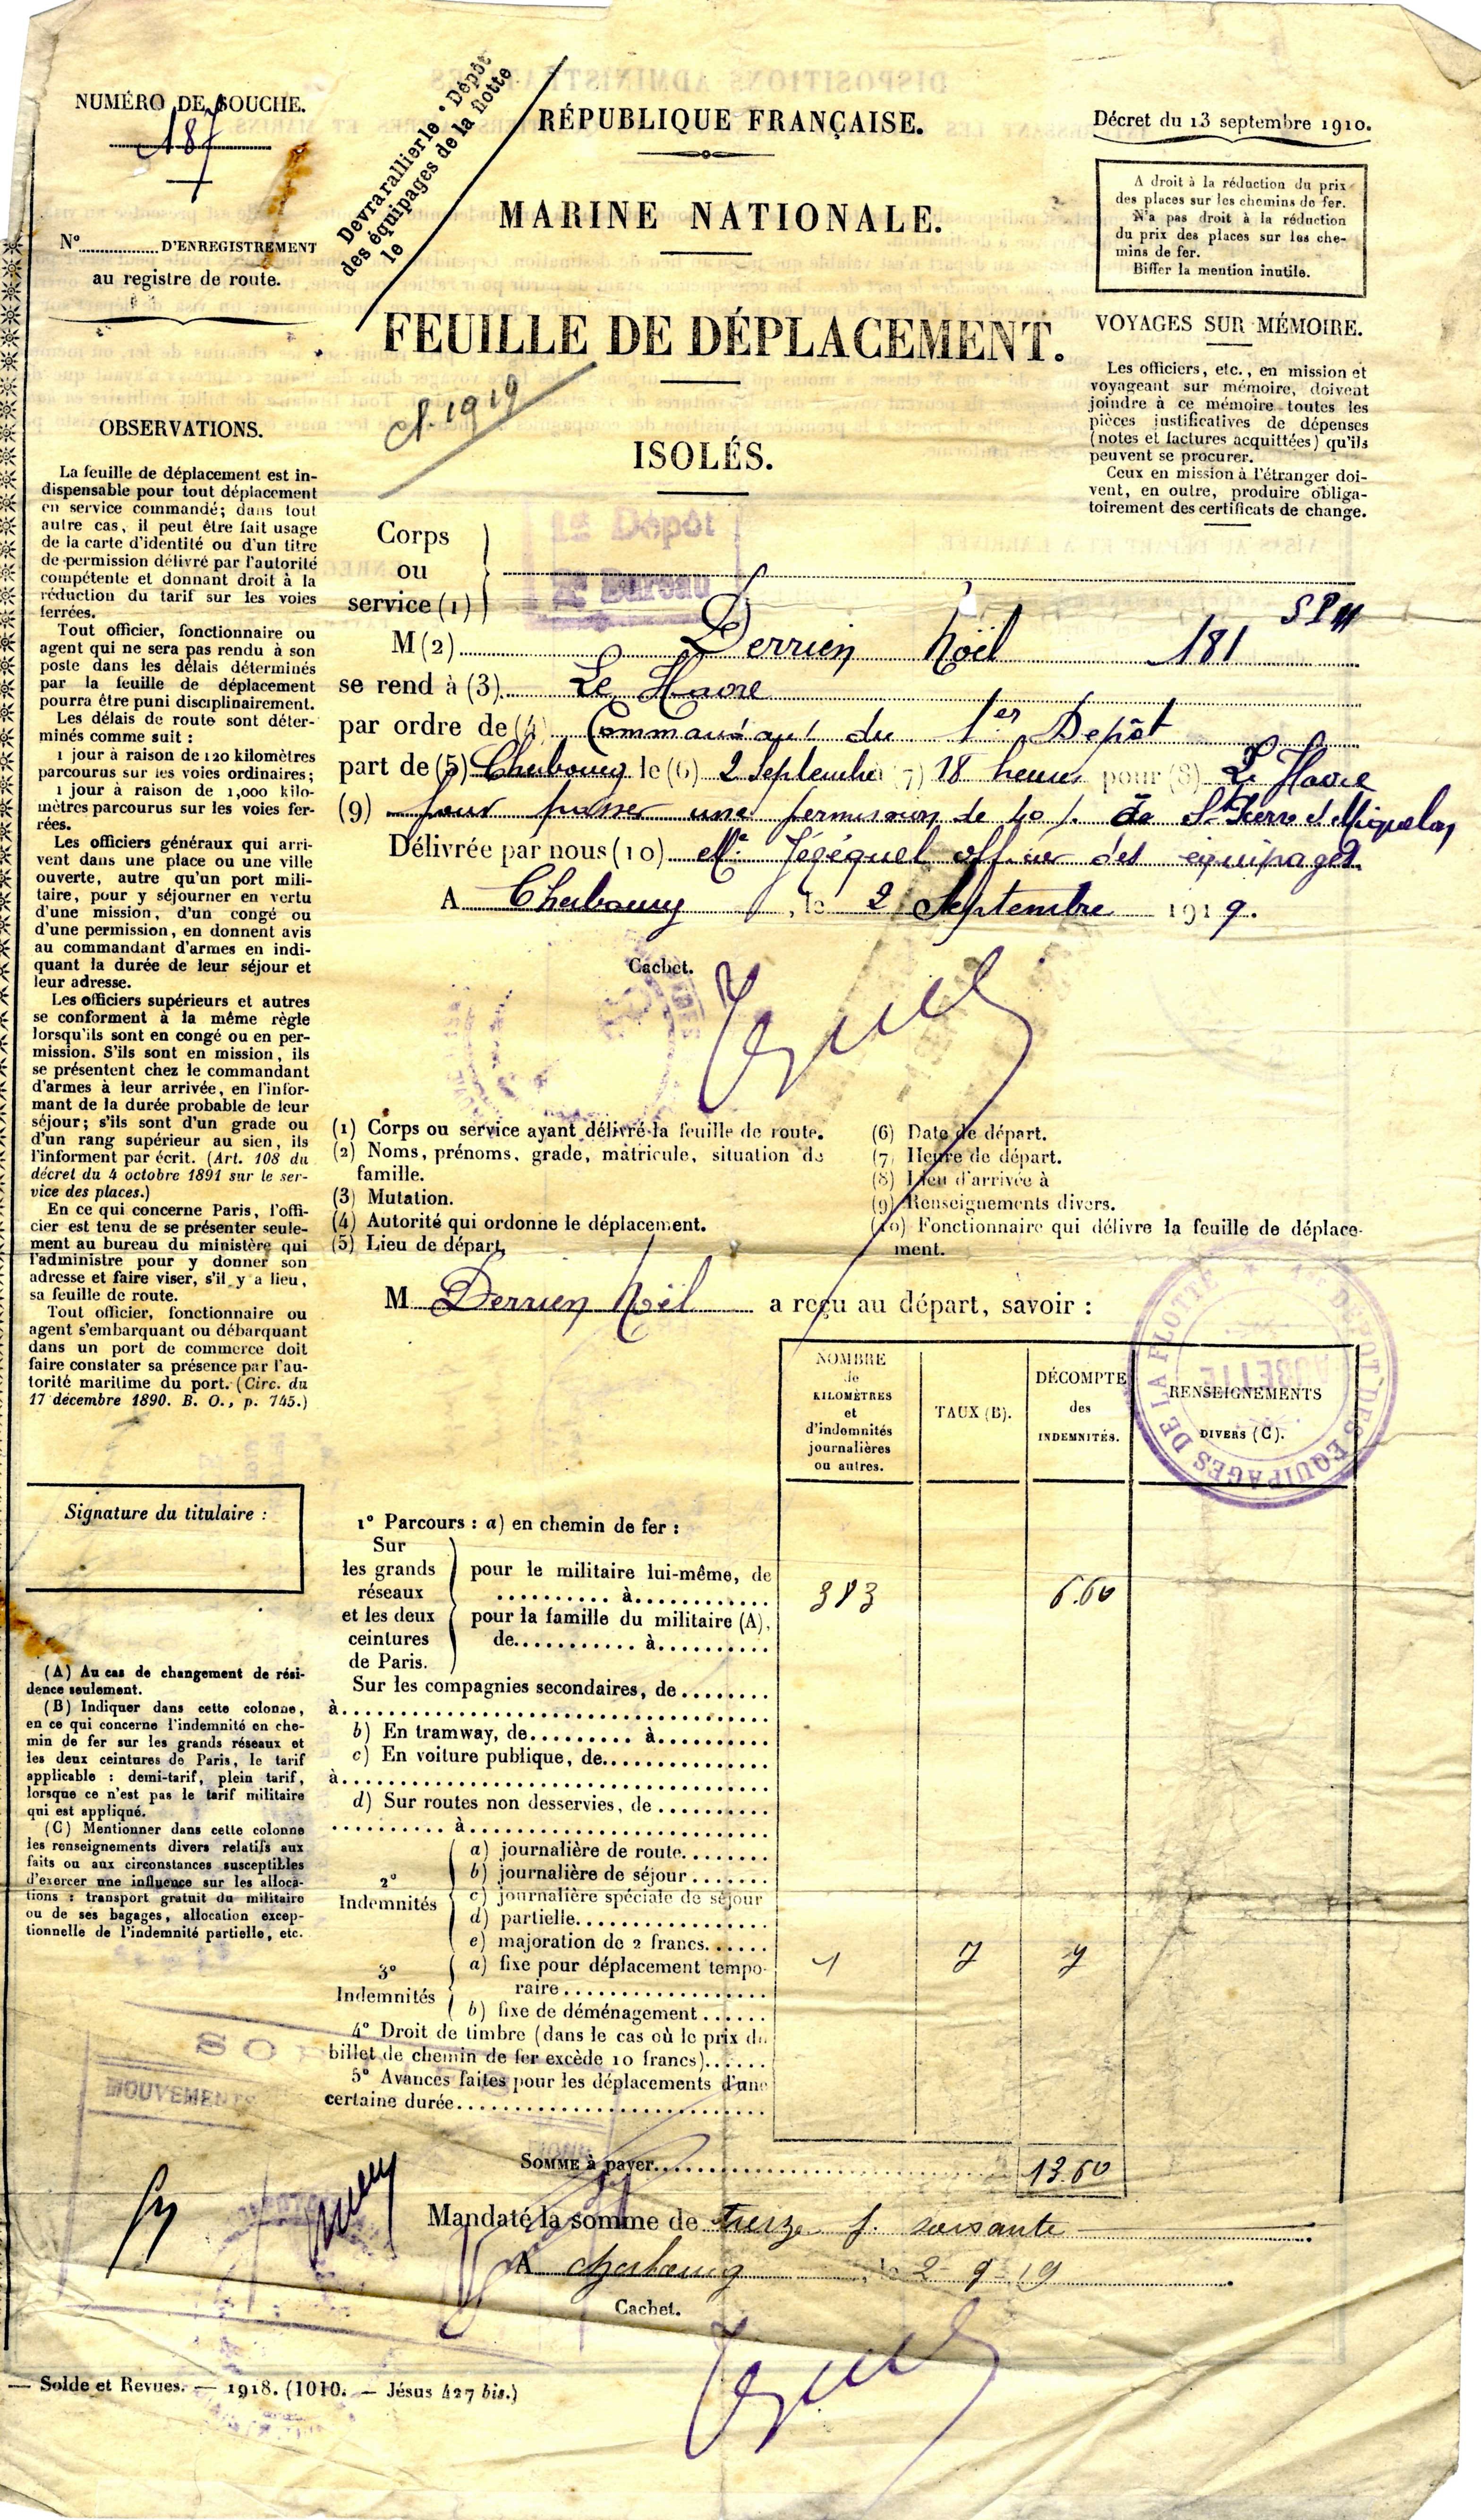 NUMÉRO DE SOUCHE.
187
N° D'ENREGISTREMENT
au registre de route.
Devra rallier le · Dépôt
des équipages de la flotte
le
RÉPUBLIQUE FRANÇAISE.
MARINE NATIONALE.
FEUILLE DE DÉPLACEMENT.
cl. 1919
ISOLÉS.
Décret du 13 septembre 1910.
A droit à la réduction du prix
des places sur les chemins de fer.
N'a pas droit à la réduction
du prix des places sur les che-
mins de fer.
Biffer la mention inutile.
VOYAGES SUR MÉMOIRE.
Les officiers, etc., en mission et
voyageant sur mémoire, doivent
joindre à ce mémoire toutes les
pièces justificatives de dépenses
(notes et factures acquittées) qu'ils
peuvent se procurer.
Ceux en mission à l'étranger doi-
vent, en outre, produire obliga-
toirement des certificats de change.
OBSERVATIONS.
La feuille de déplacement est in-
dispensable pour tout déplacement
en service commandé; dans tout
autre cas, il peut être fait usage
de la carte d'identité ou d'un titre
de permission délivré par l'autorité
compétente et donnant droit à la
réduction du tarif sur les voies
ferrées.
Tout officier, fonctionnaire ou
agent qui ne sera pas rendu à son
poste dans les délais déterminés
par la feuille de déplacement
pourra être puni disciplinairement.
Les délais de route sont déter-
minés comme suit :
1 jour à raison de 120 kilomètres
parcourus sur les voies ordinaires;
1 jour à raison de 1,000 kilo-
mètres parcourus sur les voies fer-
rées.
Les officiers généraux qui arri-
vent dans une place ou une ville
ouverte, autre qu'un port mili-
taire, pour y séjourner en vertu
d'une mission, d'un congé ou
d'une permission, en donnent avis
au commandant d'armes en indi-
quant la durée de leur séjour et
leur adresse.
Les officiers supérieurs et autres
se conforment à la même règle
lorsqu'ils sont en congé ou en per-
mission. S'ils sont en mission, ils
se présentent chez le commandant
d'armes à leur arrivée, en l'infor-
mant de la durée probable de leur
séjour; s'ils sont d'un grade ou
d'un rang supérieur au sien, ils
l'informent par écrit. (Art. 108 du
décret du 4 octobre 1891 sur le ser-
vice des places.)
En ce qui concerne Paris, l'offi-
cier est tenu de se présenter seule-
ment au bureau du ministère qui
l'administre pour y donner son
adresse et faire viser, s'il y a lieu,
sa feuille de route.
Tout officier, fonctionnaire ou
agent s'embarquant ou débarquant
dans un port de commerce doit
faire constater sa présence par l'au-
torité maritime du port. (Circ. du
17 décembre 1890. B. O., p. 745.)
Signature du titulaire :
(A) Au cas de changement de rési-
dence seulement.
(B) Indiquer dans cette colonne,
en ce qui concerne l'indemnité en che-
min de fer sur les grands réseaux et
les deux ceintures de Paris, le tarif
applicable : demi-tarif, plein tarif,
lorsque ce n'est pas le tarif militaire
qui est appliqué.
(C) Mentionner dans cette colonne
les renseignements divers relatifs aux
faits ou aux circonstances susceptibles
d'exercer une influence sur les alloca-
tions : transport gratuit du militaire
ou de ses bagages, allocation excep-
tionnelle de l'indemnité partielle, etc.
Corps
ou
service (1)
1er Dépôt
2e Bureau
M (2) Derrien Noël 181 SPM
se rend à (3) Le Havre
par ordre de (4) Commandant du 1er Dépôt
part de (5) Cherbourg le (6) 2 Septembre (7) 18 heures pour (8) Le Havre
(9) pour passer une permission de 40 j. à St Pierre et Miquelon
Délivrée par nous (10) Mr Jézéquel officier des équipages
A Cherbourg, le 2 Septembre 1919.
Cachet.
(1) Corps ou service ayant délivré la feuille de route.
(2) Noms, prénoms, grade, matricule, situation de
famille.
(3) Mutation.
(4) Autorité qui ordonne le déplacement.
(5) Lieu de départ.
(6) Date de départ.
(7) Heure de départ.
(8) Lieu d'arrivée à
(9) Renseignements divers.
(10) Fonctionnaire qui délivre la feuille de déplace-
ment.
M Derrien Noël a reçu au départ, savoir :
1er DÉPÔT DES ÉQUIPAGES DE LA FLOTTE
AUBETTE
NOMBRE
de
KILOMÈTRES
et
d'indemnités
journalières
ou autres.
TAUX (B).
DÉCOMPTE
des
INDEMNITÉS.
RENSEIGNEMENTS
DIVERS (C).
1° Parcours : a) en chemin de fer :
Sur
les grands
réseaux
et les deux
ceintures
de Paris.
pour le militaire lui-même, de
à 383 6.60
pour la famille du militaire (A),
de à
Sur les compagnies secondaires, de
à
b) En tramway, de à
c) En voiture publique, de
à
d) Sur routes non desservies, de
à
2°
Indemnités
a) journalière de route
b) journalière de séjour
c) journalière spéciale de séjour
d) partielle
e) majoration de 2 francs
3°
Indemnités
a) fixe pour déplacement tempo-
raire 1 7 7
b) fixe de déménagement
4° Droit de timbre (dans le cas où le prix du
billet de chemin de fer excède 10 francs)
5° Avances faites pour les déplacements d'une
certaine durée
SOMME à payer 13.60
MOUVEMENTS
Mandaté la somme de treize f. soixante
A Cherbourg, le 2-9-19
Cachet.
— Solde et Revues. — 1918. (1010. — Jésus 427 bis.)